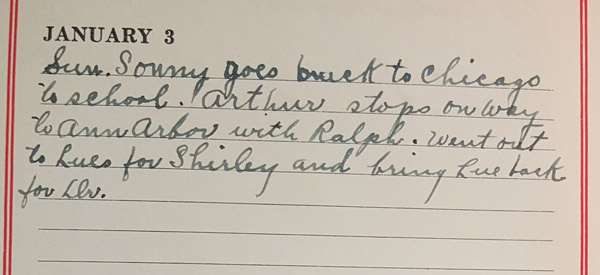 JANUARY 3
Sun. Sonny goes back to Chicago
to school. Arthur stops on way
to Ann Arbor with Ralph. Went out
to Lues for Shirley and bring Lue back
for Dr.